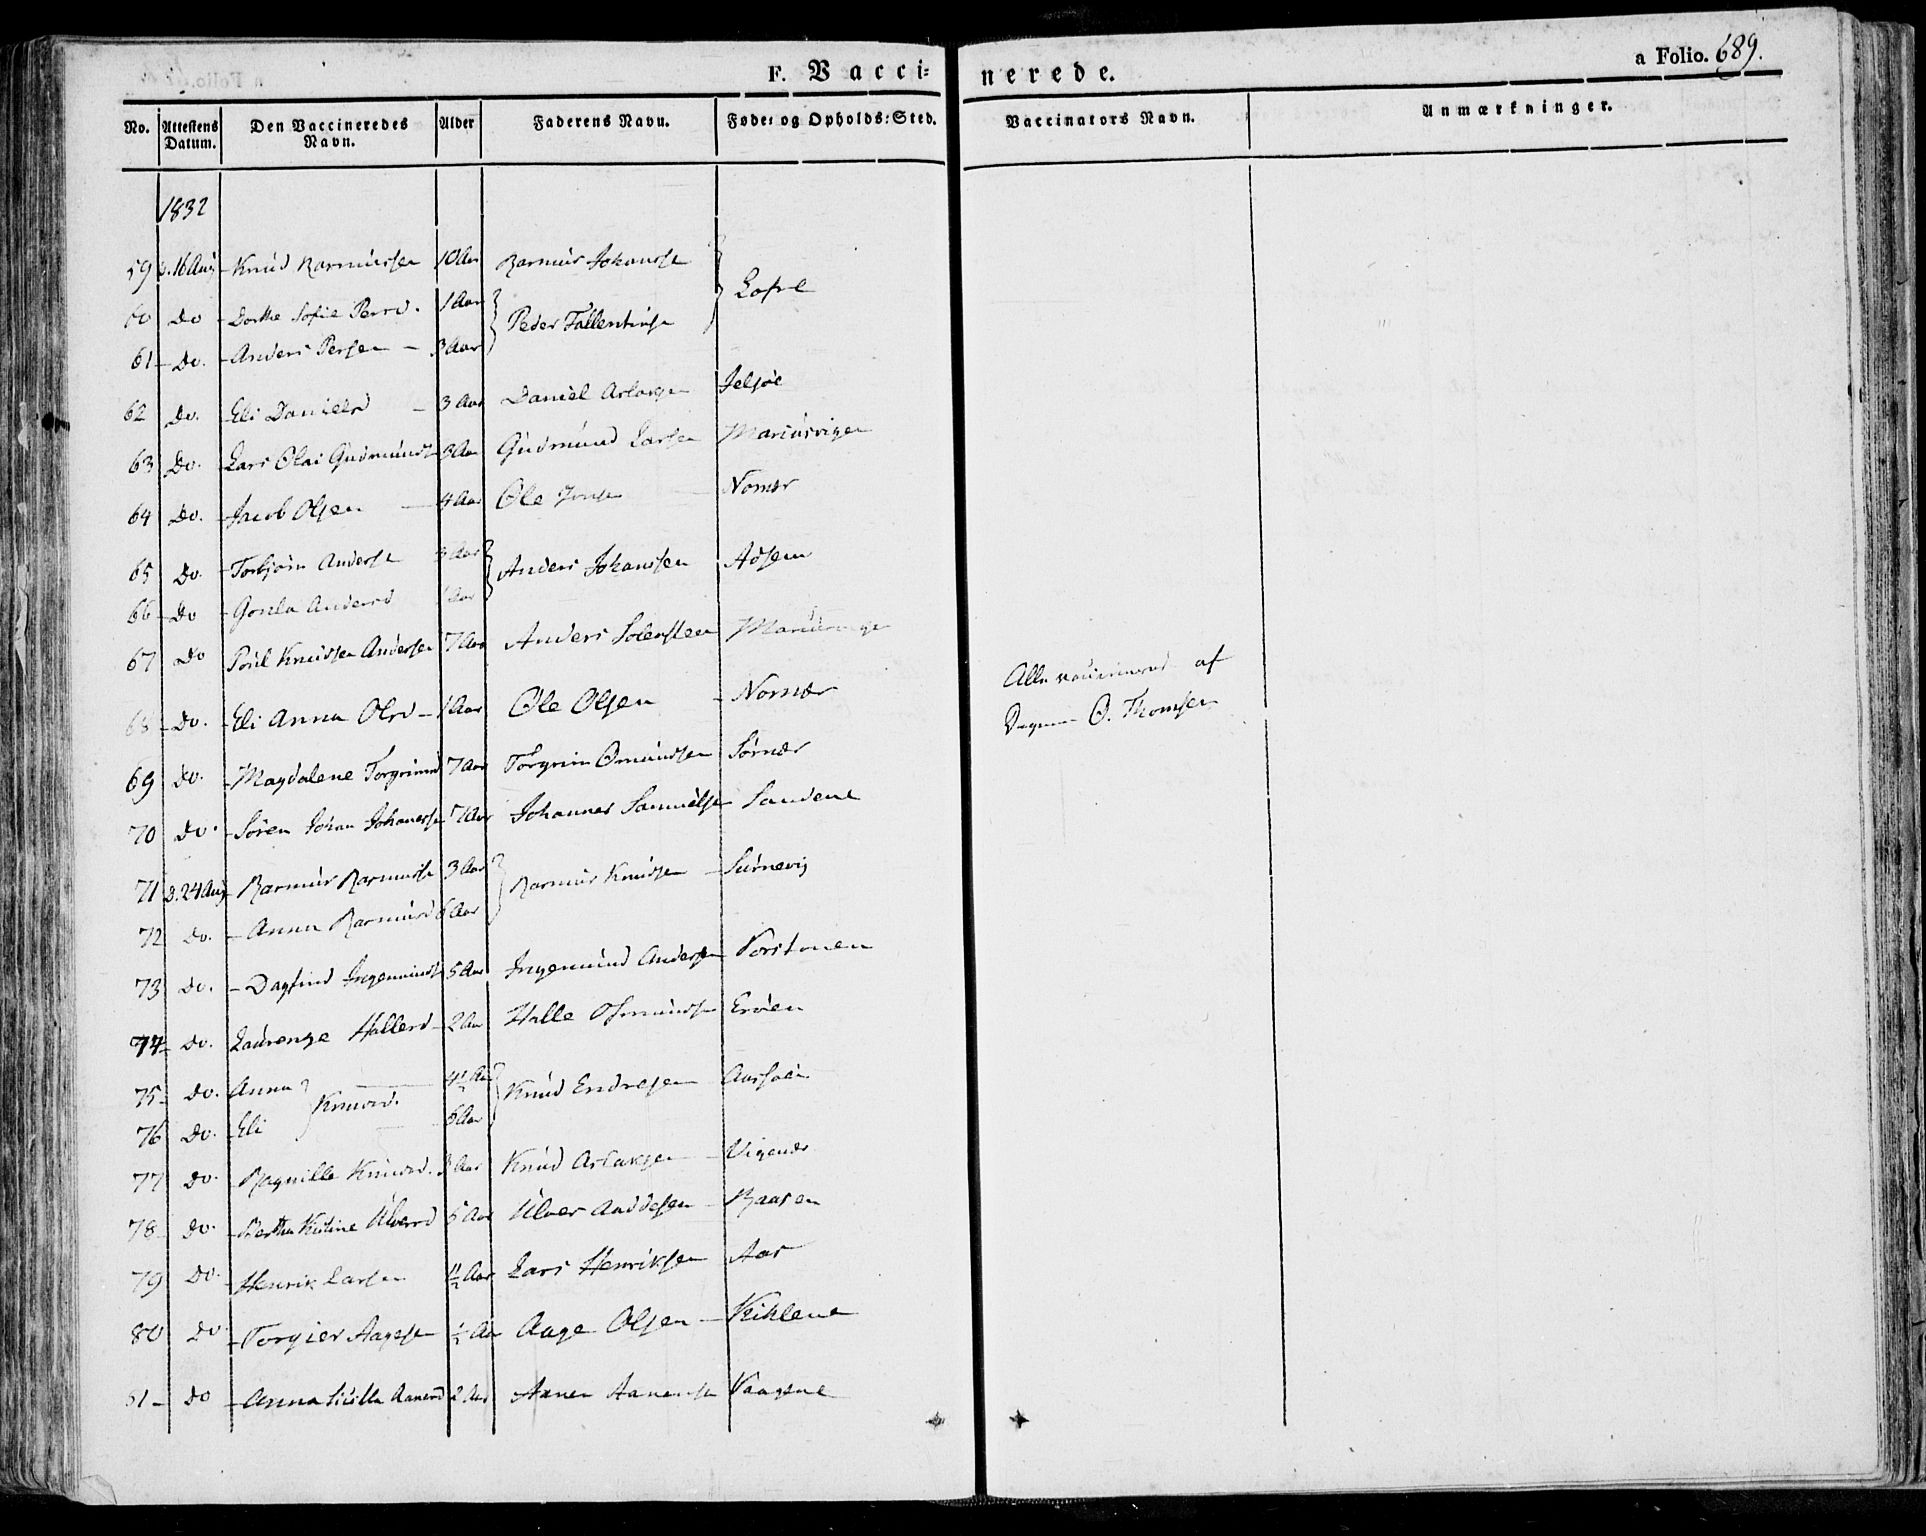 F. Vacci=nerede.
a Folio. 689.
No. Attestens Datum. Den Vaccineredes Navn. Alder Faderens Navn. Føde= og Opholds=Sted. Vaccinators Navn. Anmærkninger.
1832
59 d. 16 Aug - Knud Rasmussen 10 Aar Rasmus Johanse
60 Do Dorthe Sofie Persd. 1 Aar Peder Fallentinse Lofre
61 - Do. - Anders Persen - 3 Aar
62 Do. - Eli Danielsd - 3 Aar Daniel Aslagse Jelsøe
63 Do. - Lars Olai Gudmundse Aar Gudmund Larsen Mariusvigen
64 Do. - Jacob Olsen - 4 Aar Ole Nomær
65 Do. - Torbjørn Anderse Aar Anders Johansen Adsem
66 - Do - Gonla Andersd Aar
67 Do Poul Knudsen Andersen 7 Aar Anders
68 - Do. - Eli Anna Olsd - 1 Aar Ole Olsen - Nomær
69 Do. - Magdalene Torgrimsd 7 Aar Torgrim Omundsen Sørnær
70 Do. - Søren Johan Johanese 7 Aar Johannes Samuelse - Sandene
71 D. 24 Aug - Rasmus Rasmusse 3 Aar Rasmus Knudsen - Surnevig
72 Do. - Anna Rasmusd 6 Aar
73 Do. - Dagfind Ingemundse 5 Aar Ingemund Andersen
74 - Do. Laurenze Hallesd - 2 Aar Halle Osmundse Erøen
75 - Do. Anna Knudsd. 4½ Aar Knud Endresen
76 Do. - Eli 6 Aar
77 Do. - Ragnille Knudsd. Aar Knud Aslaksen - Vigenes
78 Do. - Bertha Kistine Ulversd 5 Aar Ulver
79 Do. - Henrik Larsen Aar Lars Henriksen - Aas
80 Do - Torgier Aagese ½ Aar Aage Olsen - Kiklene
81 - Do - Anna Sicilla Aanend 2 Aar Aanen Aanense Vaagene
Alle vaccinered af
O. Thomsen